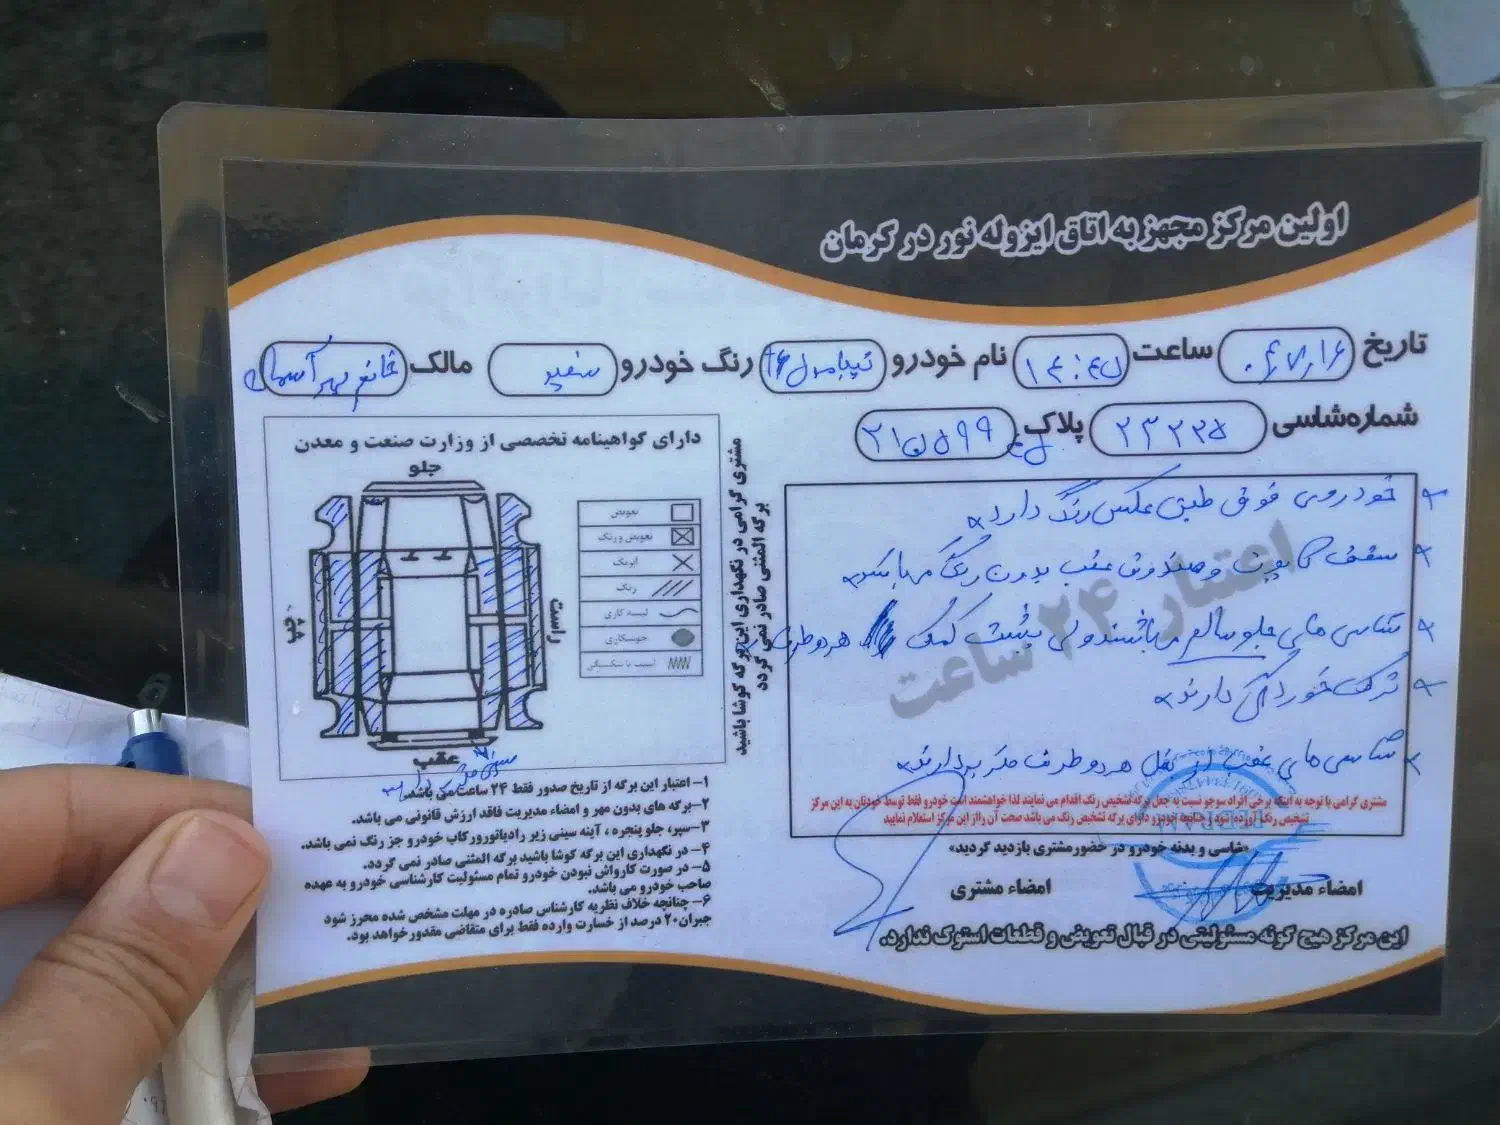 اولین مرکز مجهز به اتاق ایزوله نور در کرمان
تاریخ ساعت ۱۴:۴۵ نام خودرو رنگ خودرو سفید مالک
شماره شاسی ۲۳۲۲۵ پلاک
دارای گواهینامه تخصصی از وزارت صنعت و معدن
جلو
چپ
راست
عقب
تعویض
تعویض و رنگ
رنگ
لیسه کاری
مشتری گرامی در نگهداری این برگه کوشا باشید
برگه المثنی صادر نمی گردد
خودروی فوق طبق عکس رنگ دارد
سقف کاپوت و صندوق عقب بدون رنگ میباشد
شاسی های جلو سالم میباشند ولی پشت کمک هردوطرف
ترک خوردگی دارند
شاسی های عقب از بغل هردوطرف دارند
اعتبار ۲۴ ساعت
مشتری گرامی با توجه به اینکه برخی افراد سودجو نسبت به جعل برگه تشخیص رنگ اقدام می نمایند لذا خواهشمند است خودرو فقط توسط خودتان به این مرکز
تشخیص رنگ آورده شود و چنانچه خودرو دارای برگه تشخیص رنگ می باشد صحت آن را از این مرکز استعلام نمایید
«شاسی و بدنه خودرو در حضور مشتری بازدید گردید»
امضاء مدیریت امضاء مشتری
این مرکز هیچ گونه مسئولیتی در قبال تعویض و قطعات استوک ندارد.
۱- اعتبار این برگه از تاریخ صدور فقط ۲۴ ساعت می باشد.
۲-برگه های بدون مهر و امضاء مدیریت فاقد ارزش قانونی می باشد.
۳-سپر، جلو پنجره ، آینه سینی زیر رادیاتورورکاب خودرو جز رنگ نمی باشد.
۴- در نگهداری این برگه کوشا باشید برگه المثنی صادر نمی گردد.
۵- در صورت کارواش نبودن خودرو تمام مسئولیت کارشناسی خودرو به عهده
صاحب خودرو می باشد.
۶- چنانچه خلاف نظریه کارشناس صادره در مهلت مشخص شده محرز شود
جبران ۲۰ درصد از خسارت وارده فقط برای متقاضی مقدور خواهد بود.